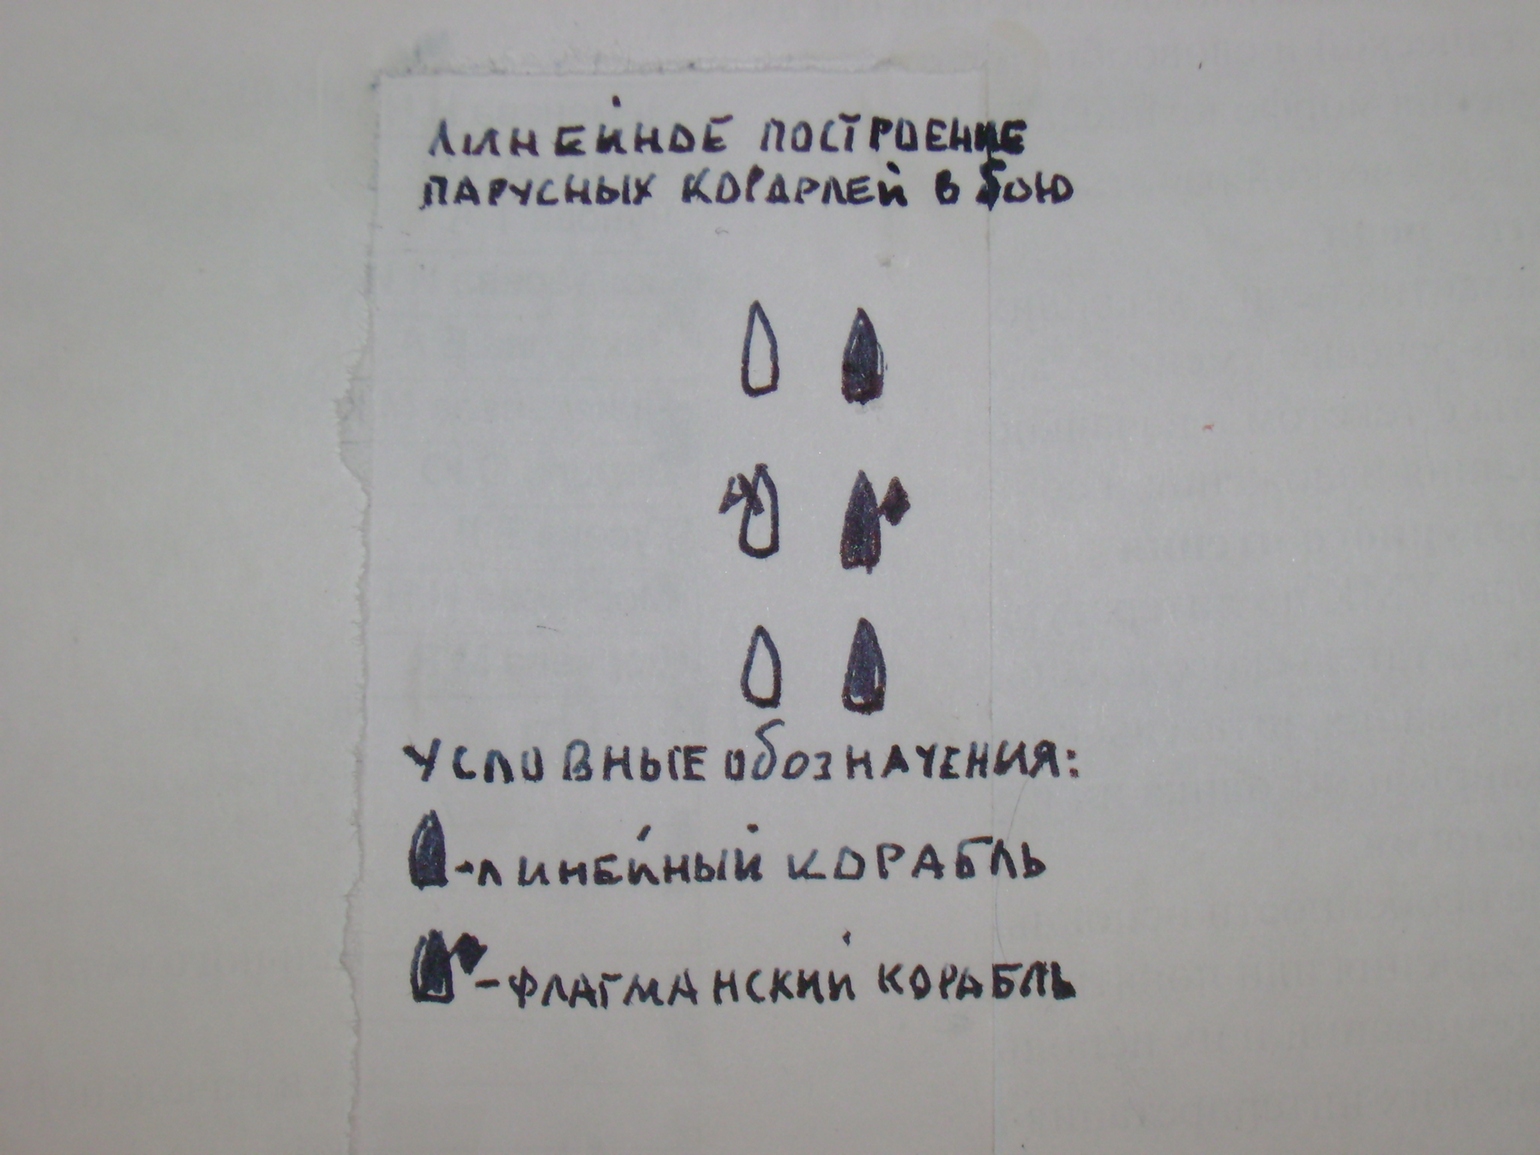 ЛИНЕЙНОЕ ПОСТРОЕНИЕ
ПАРУСНЫХ КОРАРЛЕЙ В БОЮ
УСЛОВНЫЕ ОБОЗНАЧЕНИЯ:
-ЛИНЕЙНЫЙ КОРАБЛЬ
-ФЛАГМАНСКИЙ КОРАБЛЬ